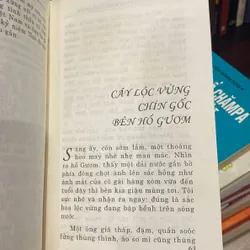 CÂY LỘC VỪNG
CHÍN GỐC
BÊN HỒ GƯƠM
Sáng ấy, còn sớm lắm, một thoáng
heo may nhè nhẹ man mác. Nhìn
ra hồ Gươm, thấy một dải nước gần bờ
phía đông chợt ánh lên sắc hồng như
ánh mắt của cô gái hàng xóm vừa đến
tuổi dậy thì bên kia giậu mùng tơi. Tôi
cúi nhặt và nhận ra ngay: đúng là sắc
hoa lộc vừng đang bập bềnh trên sóng
nước.
Một ông già thấp, đậm, quần soóc
lửng thùng thình, áo so mi cũng thụng
63
CHĂMPA